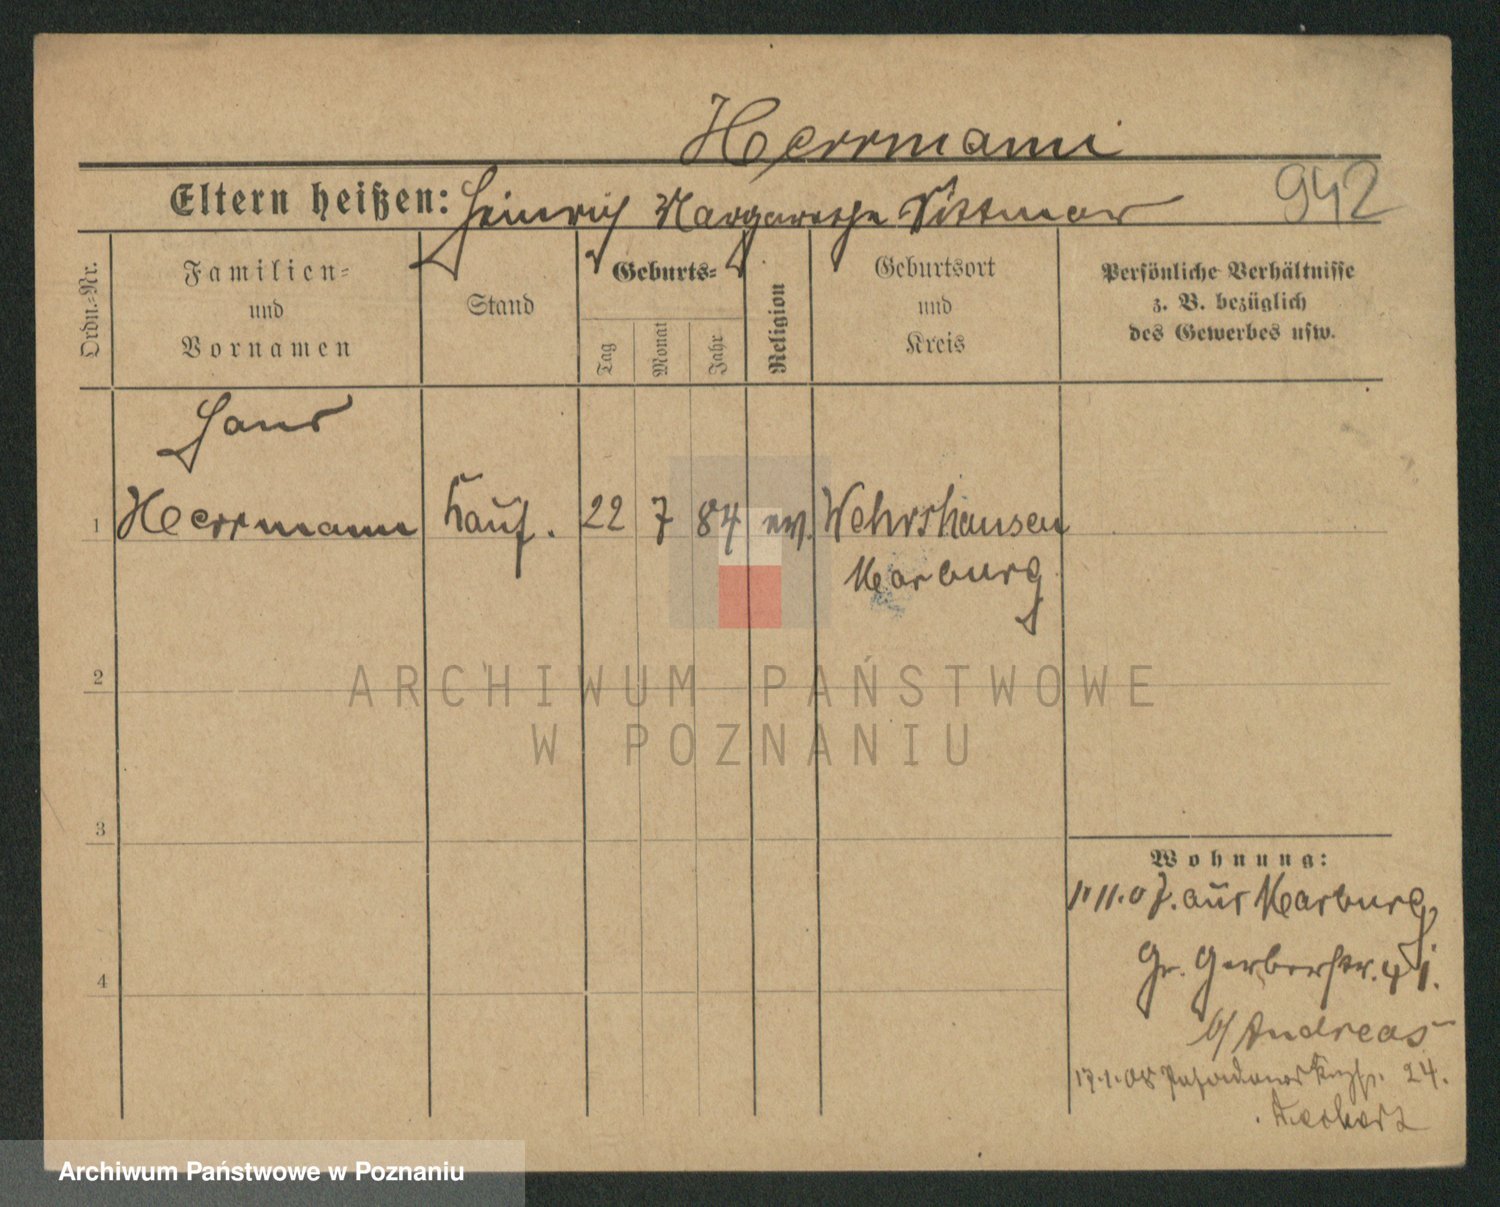 Herrmann
Eltern heißen: Heinrich Margarethe Dittmar
942
Ordn.-Nr.
Familien-
und
Vornamen
Stand
Geburts-
Tag
Monat
Jahr
Religion
Geburtsort
und
Kreis
Persönliche Verhältnisse
z. B. bezüglich
des Gewerbes usw.
Hans
1 Herrmann Kauf. 22 7 84 ev. Wehrshausen
Marburg
2
3
4
Wohnung:
1.11.07. aus Marburg
Gr. Gerberstr. 41.
b/ Andreas
17.1.08 24.
ARCHIWUM PAŃSTWOWE
W POZNANIU
Archiwum Państwowe w Poznaniu